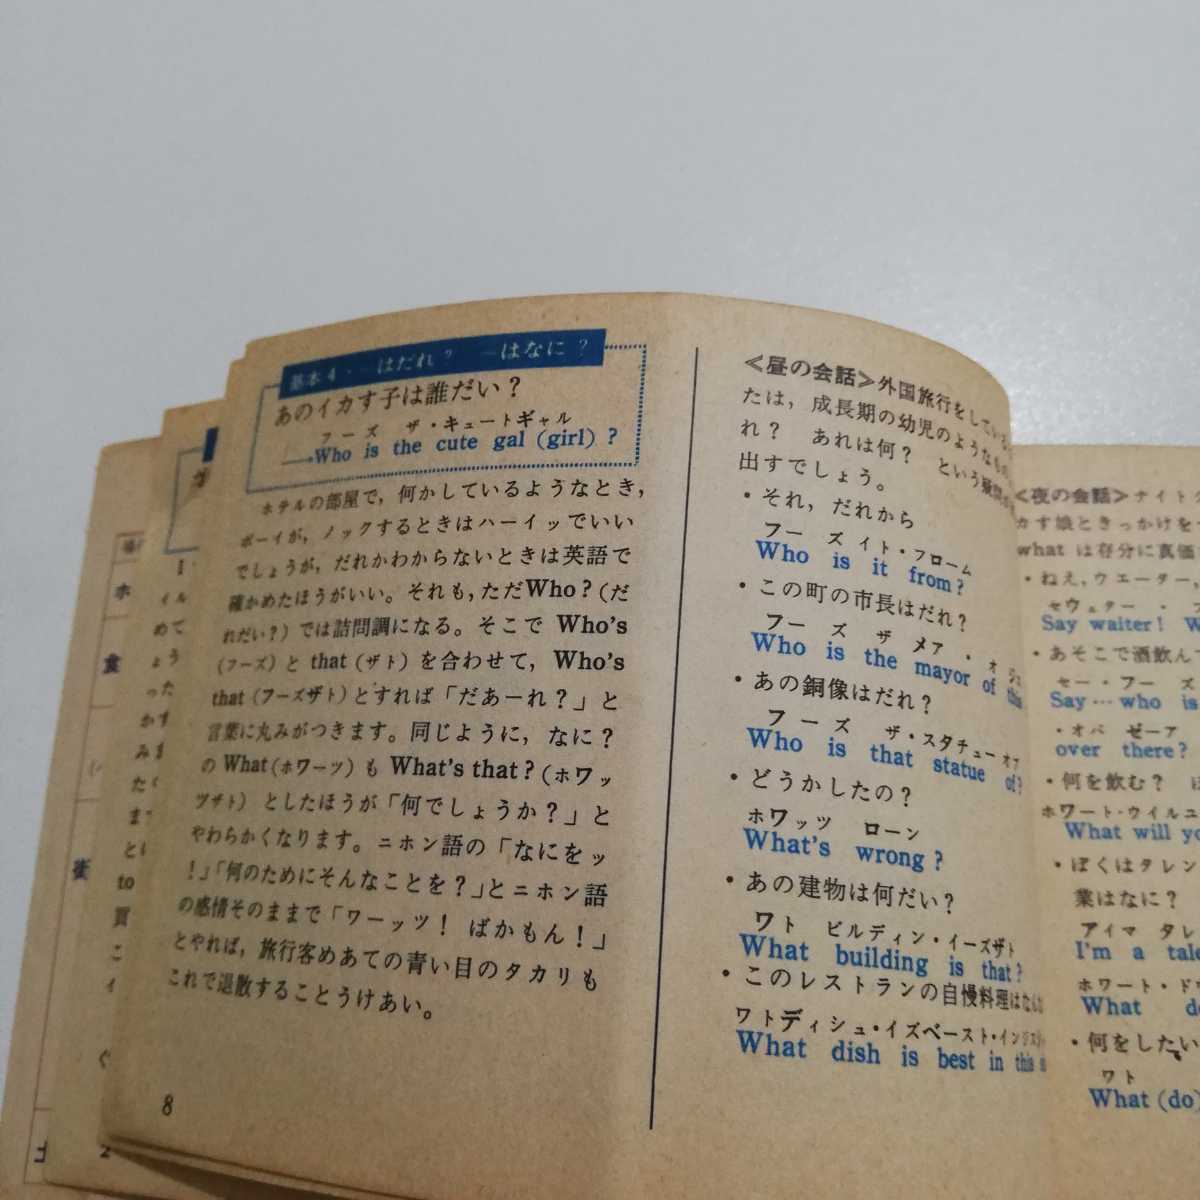 基本4・―はだれ？ ―はなに？
あのイカす子は誰だい？
フーズ ザ・キュートギャル
→Who is the cute gal (girl) ?
ホテルの部屋で，何かしているようなとき，
ボーイが，ノックするときはハーイッでいい
でしょうが，だれかわからないときは英語で
確かめたほうがいい。それも，ただWho？(だ
れだい？) では詰問調になる。そこで Who's
(フーズ) と that (ザト) を合わせて，Who's
that (フーズザト) とすれば「だあーれ？」と
言葉に丸みがつきます。同じように，なに？
の What (ホワーツ) も What's that? (ホワッ
ツザト) としたほうが「何でしょうか？」と
やわらかくなります。ニホン語の「なにをッ
！」「何のためにそんなことを？」とニホン語
の感情そのままで「ワーッツ！ ばかもん！」
とやれば，旅行客めあての青い目のタカリも
これで退散することうけあい。
8
＜昼の会話＞外国旅行をしている
たは，成長期の幼児のようなもの
れ？ あれは何？ という
出すでしょう。
・それ，だれから
フー ズ イト・フローム
Who is it from?
・この町の市長はだれ？
フー ズ ザ メア ・ オ
Who is the mayor of this
・あの銅像はだれ？
フー ズ ザ・スタチュー オヴ
Who is that statue of?
・どうかしたの？
ホワッツ ローン
What's wrong ?
・あの建物は何だい？
ワト ビルディン・イーズザト
What building is that?
・このレストランの自慢料理はなん
ワトディシュ・イズベースト・イン
What dish is best in this
＜夜の会話＞ナイトク
カす娘ときっかけを
what は存分に真価
・ねえ，ウエーター，
セウェター ・
Say waiter! W
・あそこで酒飲んで
セー・フー ズ
Say … who is
・オバ ゼーア
over there?
・何を飲む？
ホワート・ウイルユ
What will yo
・ぼくはタレン
業はなに？
アイマ タレ
I'm a tale
ホワート・ドゥ
What do
・何をしたい
ワト
What (do)